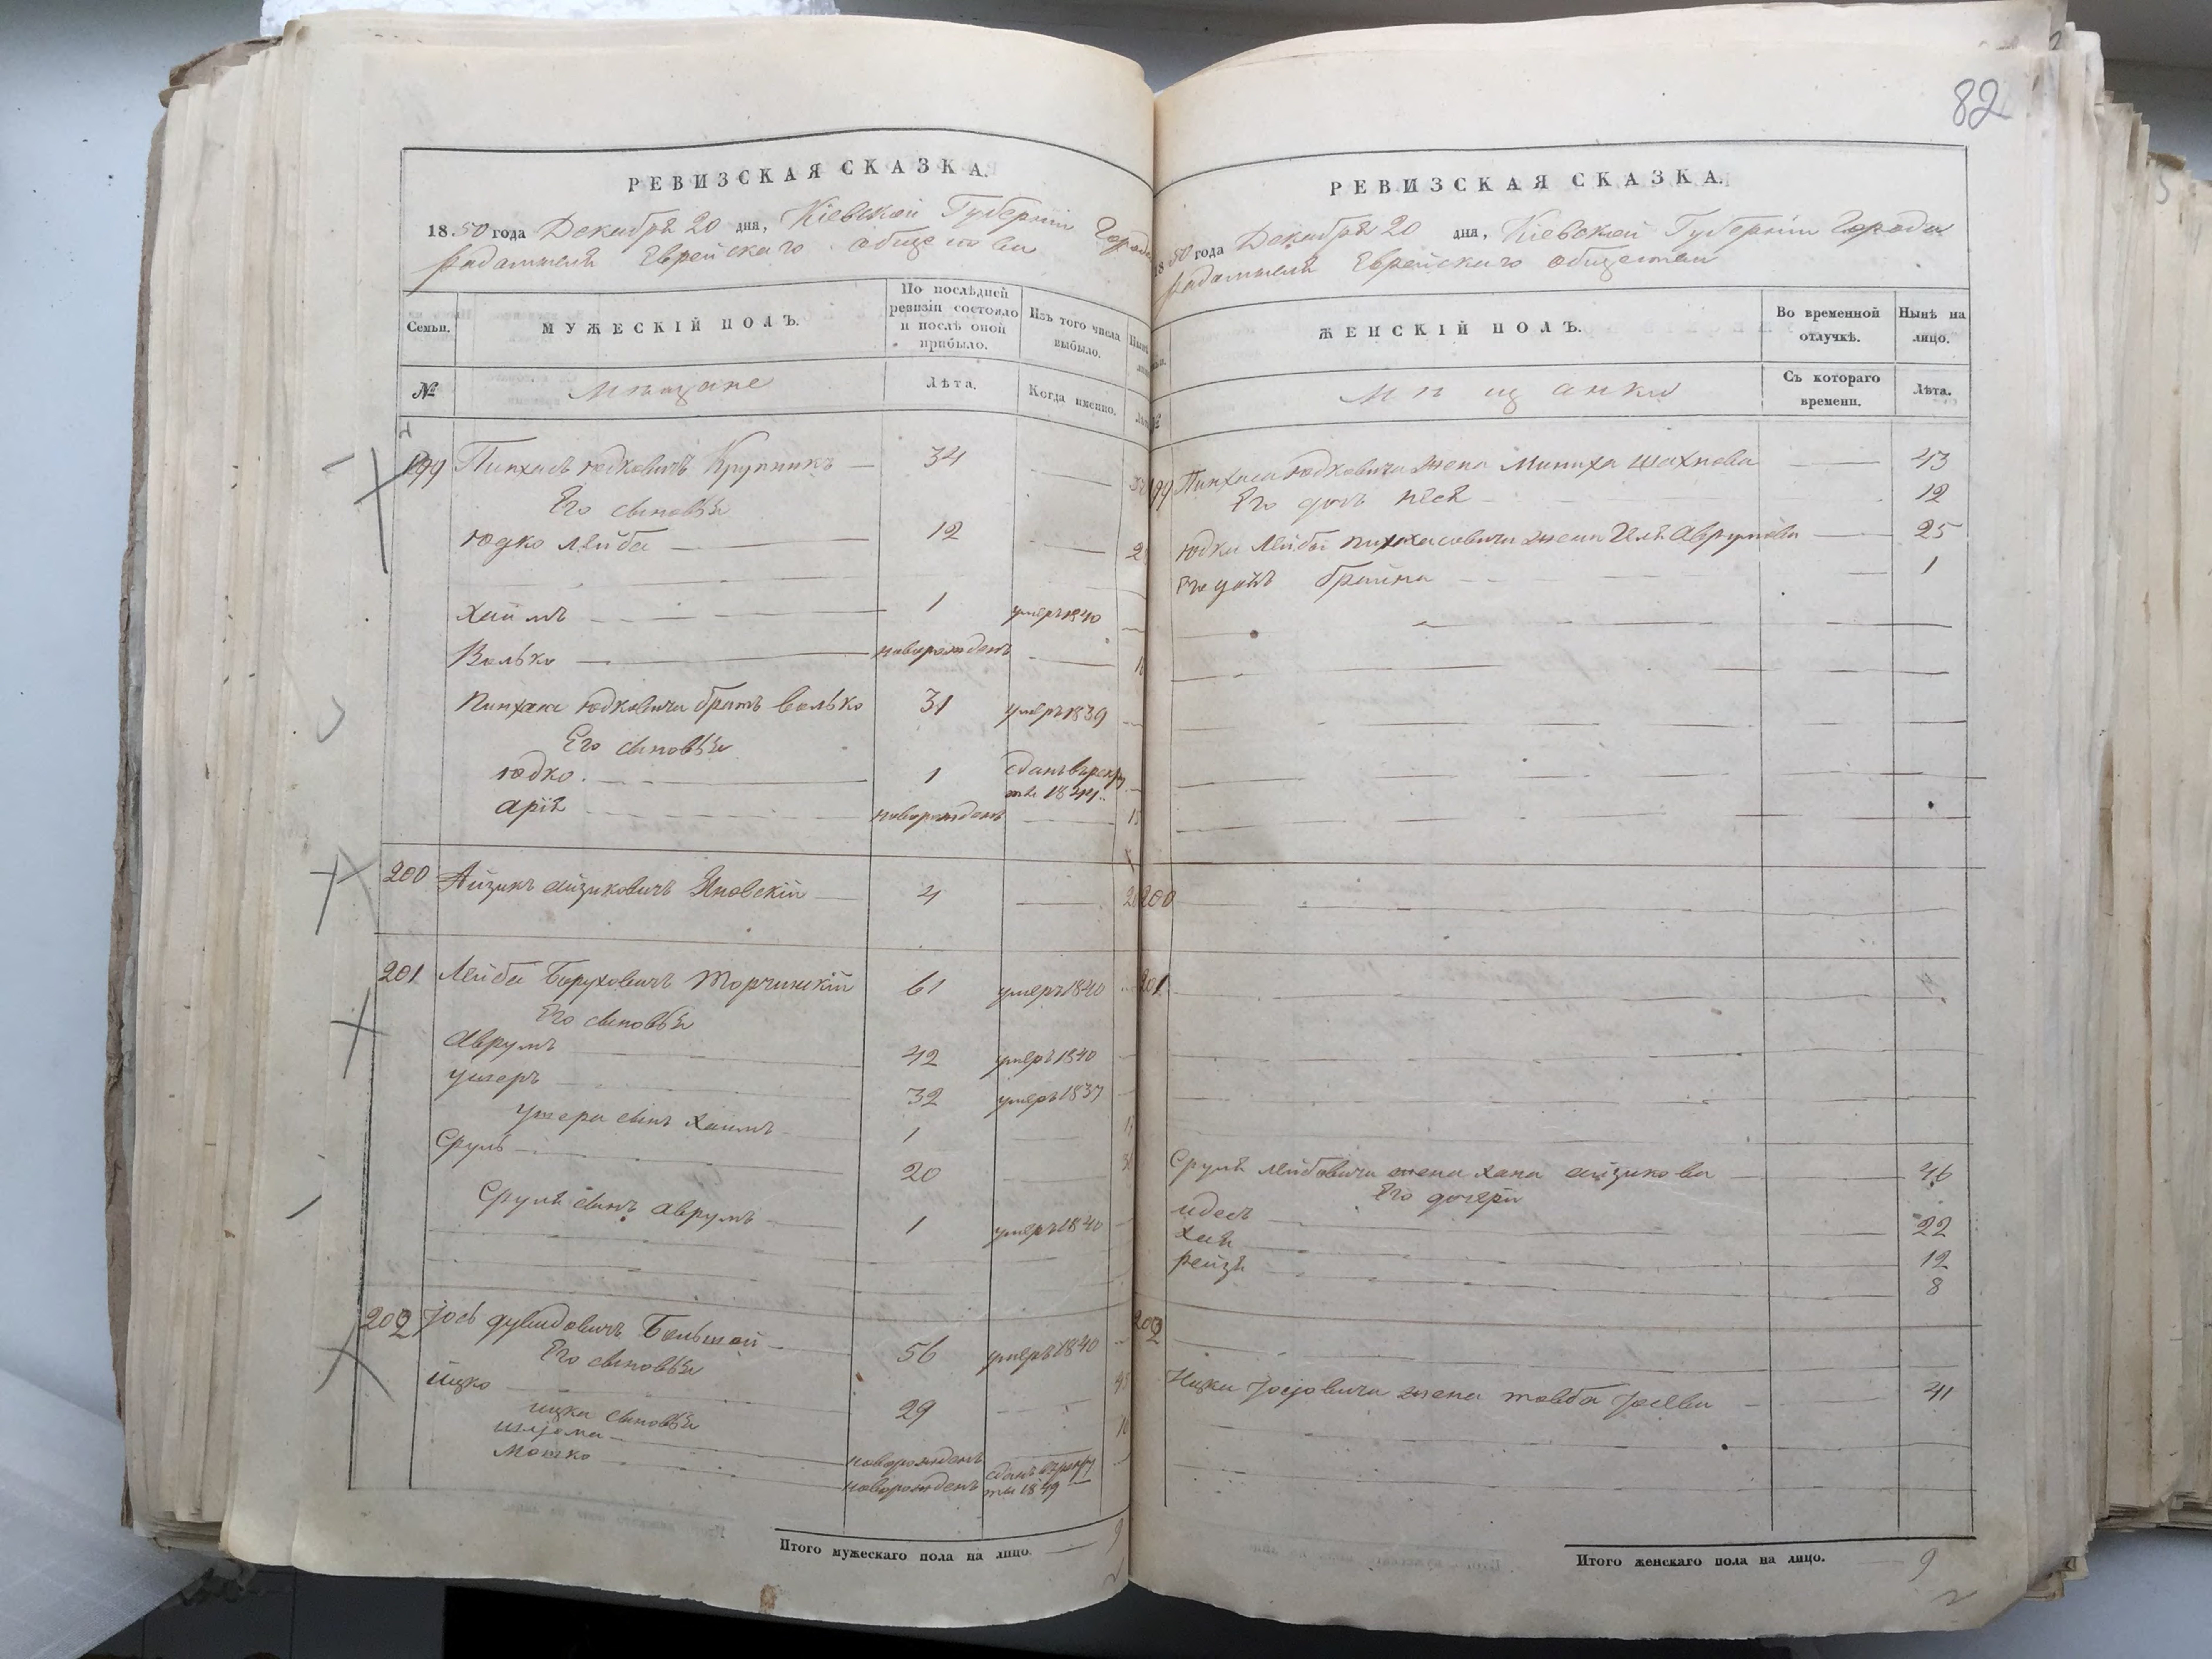 82
РЕВИЗСКАЯ СКАЗКА.
18.50 года Декабря 20 дня, Кіевской Губерніи Города
Радомысля Еврейскаго общества
Семьи.
МУЖЕСКІЙ ПОЛЪ.
По послѣдней
ревизіи состояло
и послѣ оной
прибыло.
Изъ того числа
выбыло.
№
Мѣщане
Лѣта.
Когда именно.
199 Пинхасъ Юдковичъ Крупникъ — 34
Его сыновья
Юдко Лейба — 12
Хаимъ — 1 умеръ 1840
Волько — новорожденъ
Пинхаса Юдковича братъ Волько 31 умеръ 1839
Его сыновья
Юдко. — 1 сданъ въ рекру
ты 1844..
Аріе новорожденъ
200 Айзикъ Айзиковичъ Яновскій — 4
201 Лейба Боруховичъ Торчинскій 61 умеръ 1840
Его сыновья
Аврумъ 42 умеръ 1840
Ушеръ 32 умеръ 1837
Ушера сынъ Хаимъ 1
Сруль 20
Сруля сынъ Аврумъ 1 умеръ 1840
202 Іось Дувидовичъ Большой 56 умеръ 1840
Его сыновья
Ицко 29
Ицка сыновья
Шліома новорожденъ
Мошко новорожденъ сданъ въ рекру
ты 1849
Итого мужескаго пола на лицо. — 9
РЕВИЗСКАЯ СКАЗКА.
1850 года Декабря 20 дня, Кіевской Губерніи Города
Радомысля Еврейскаго общества
ЖЕНСКІЙ ПОЛЪ.
Во временной
отлучкѣ.
Нынѣ на
лицо.
№
Мѣщанки
Съ котораго
времени.
Лѣта.
199 Пинхаса Юдковича жена Миниха Шахнова — 43
Его дочь Неся 12
Юдки Лейбы Пинхасовича жена Авrумова — 25
Его дочь Брайна 1
200
201
Сруля Лейбовича жена Хана Айзикова 46
Его дочери
Идесъ 22
Хая 12
Рейзя 8
202
Ицки Іосіовича жена Товба 41
Итого женскаго пола на лицо. 9